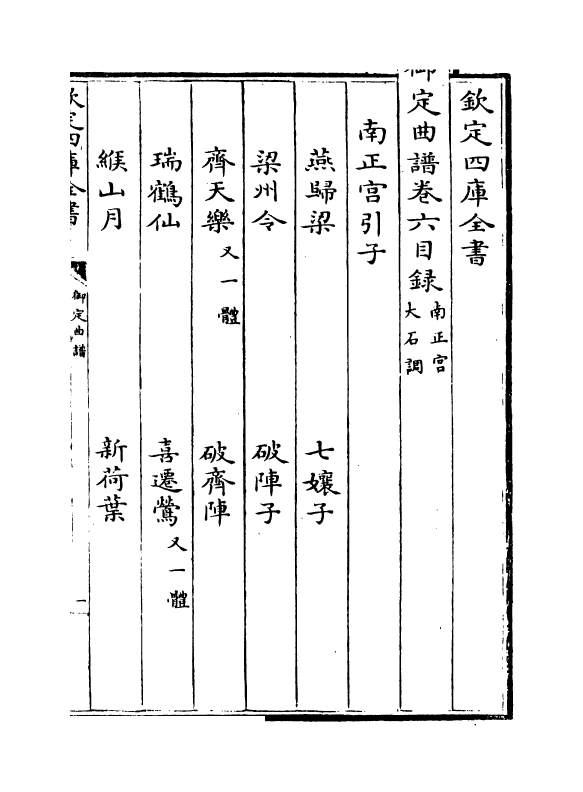 欽定四庫全書
御定曲譜卷六目録 南正宮 大石調
南正宮引子
燕歸梁 七孃子
梁州令 破陣子
齊天樂 又一體 破齊陣
瑞鶴仙 喜遷鶯 又一體
緱山月 新荷葉
欽定四庫全書 御定曲譜 一